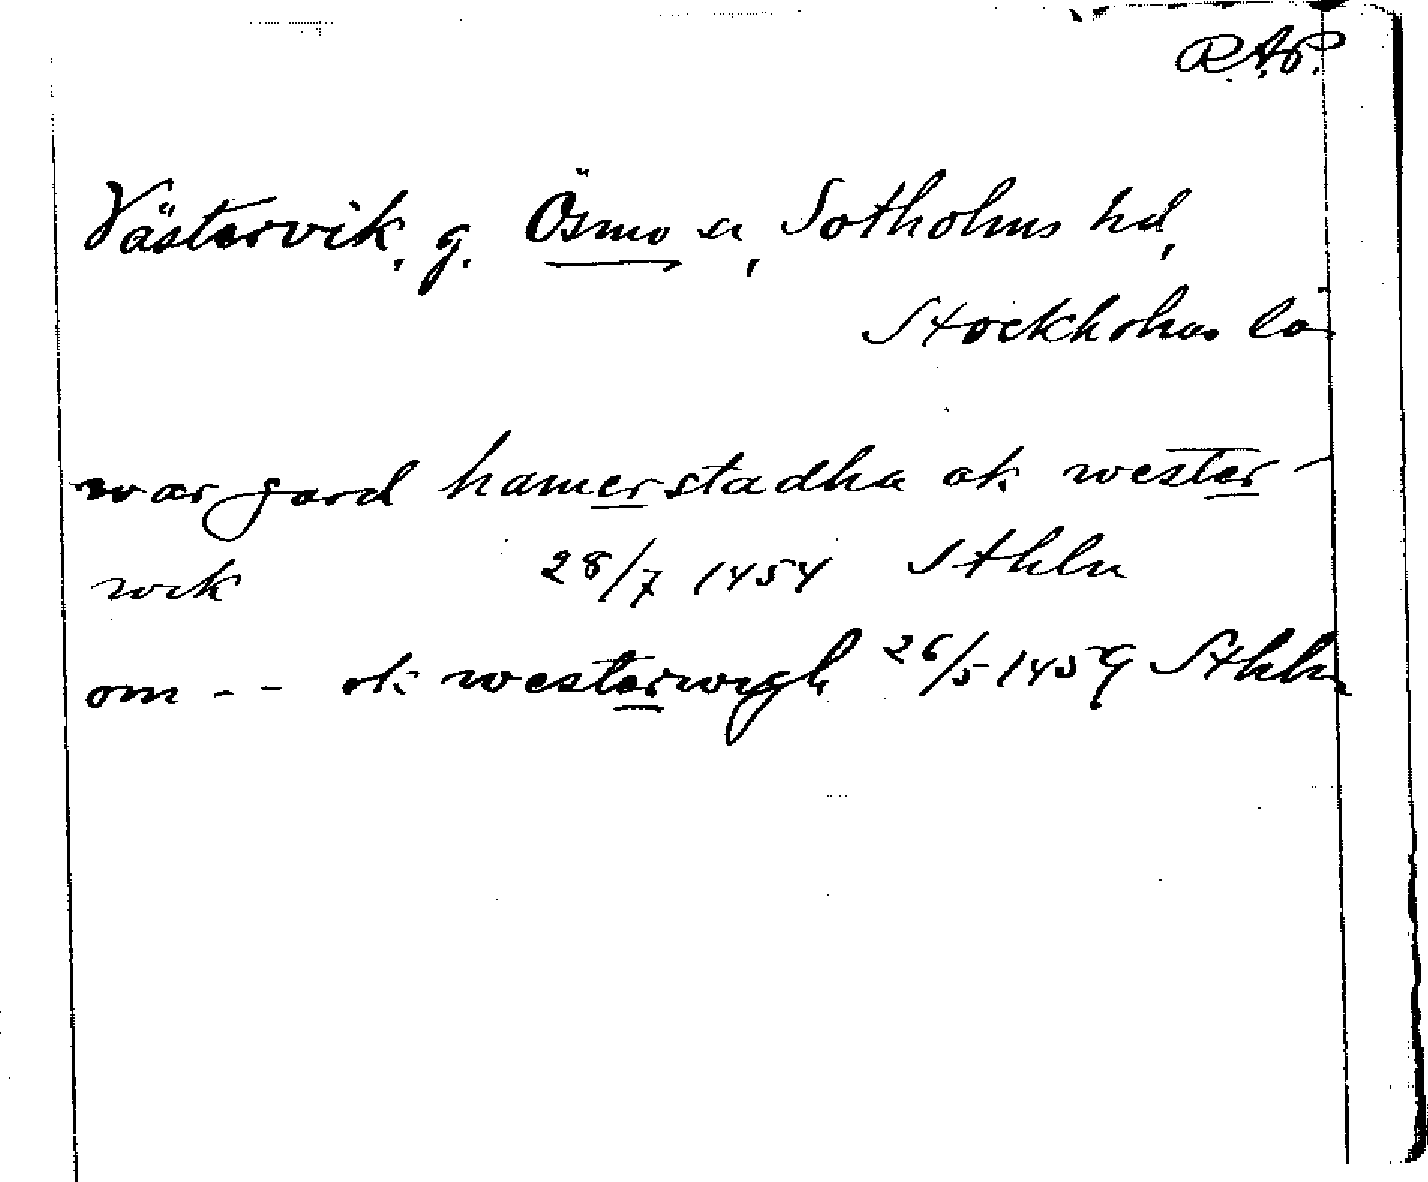 R.A.P.
Västervik, g. Ösmo sn, Sotholms hd,
Stockholms lä
war gard hamerstadha ok wester-
wik 28/7 1454 Sthlm
om -- ok westerwigh 26/5 1459 Sthlm